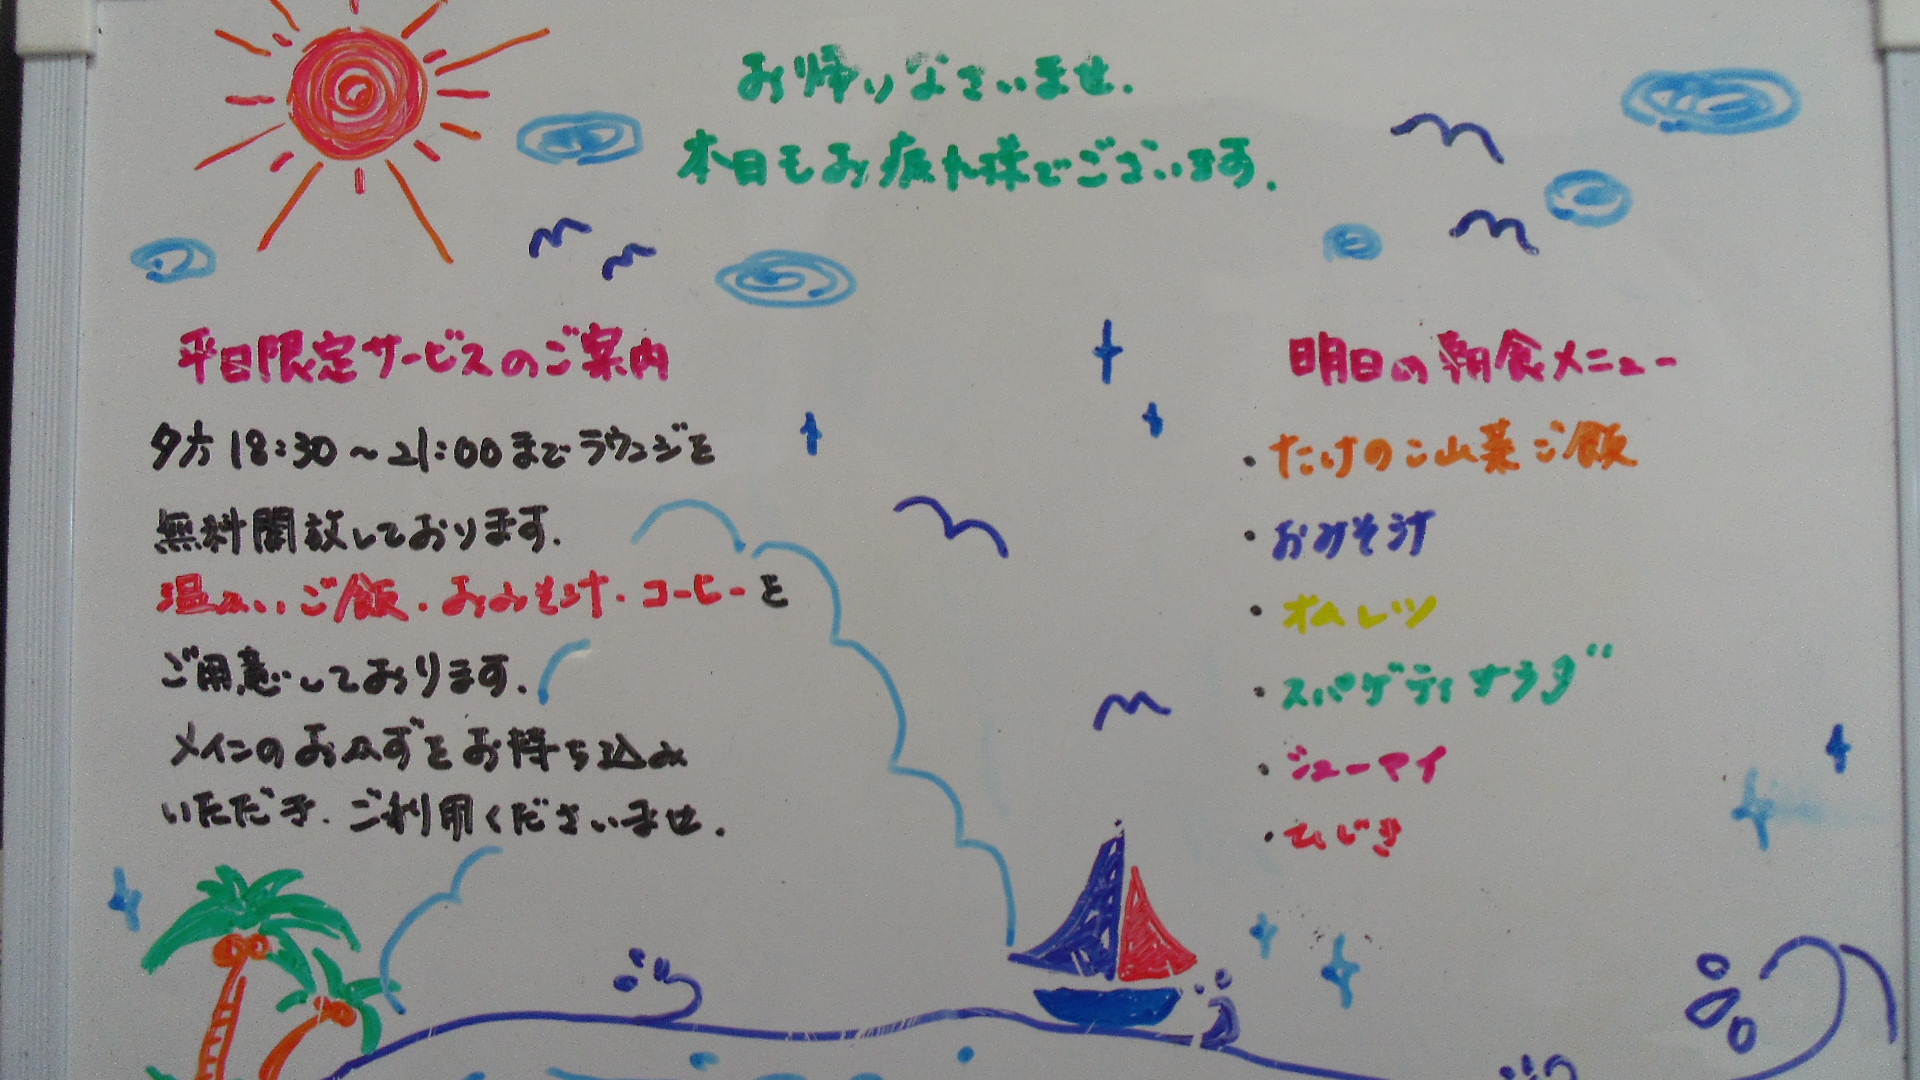 お帰りなさいませ.
本日もお疲れ様でございます.
平日限定サービスのご案内
夕方18:30~21:00までラウンジを
無料開放しております.
温かいご飯・おみそ汁・コーヒーを
ご用意しております.
メインのおかずをお持ち込み
いただき、ご利用くださいませ.
明日の朝食メニュー
・たけのこ山菜ご飯
・おみそ汁
・オムレツ
・スパゲティサラダ
・シューマイ
・ひじき